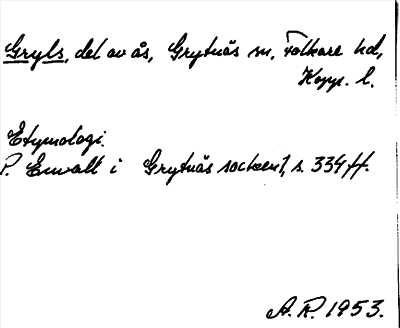 Gryls, del av ås, Grytnäs sn, Folkare hd,
Kopp. l.
Etymologi.
P. Envall i Grytnäs socken 1, s. 334 ff.
A.R. 1953.